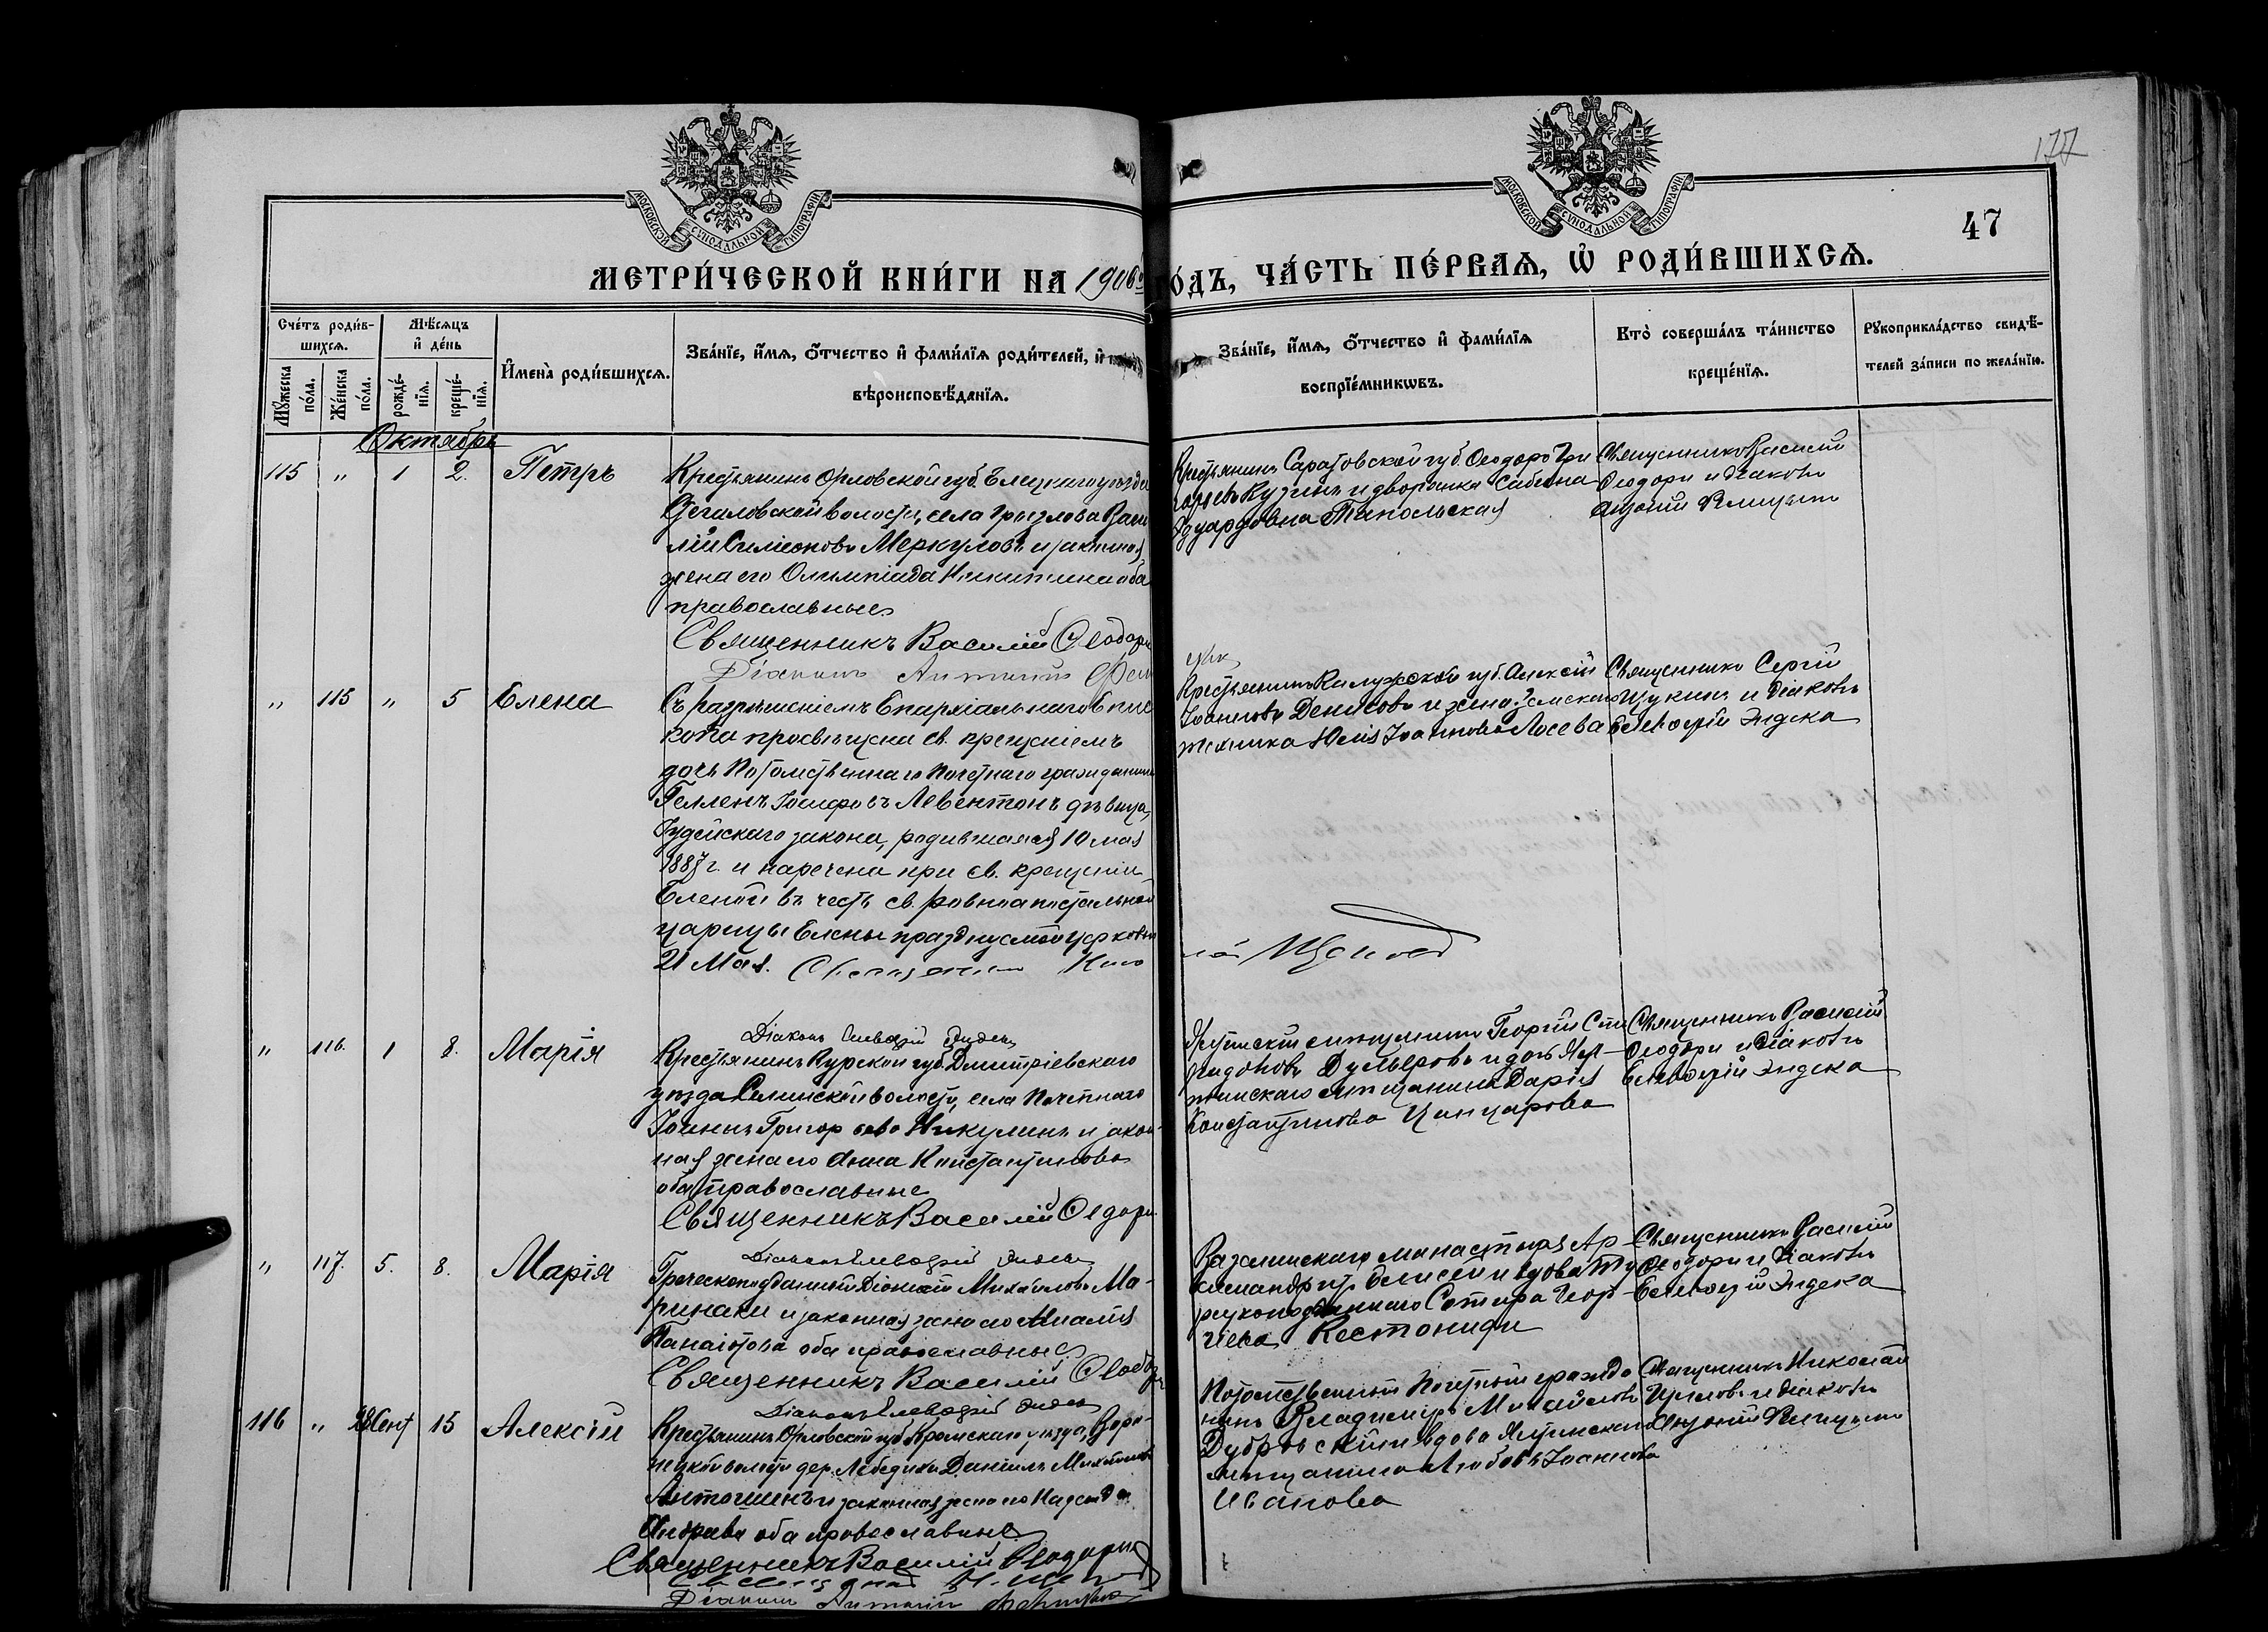 177
47
МОСКОВСКОЙ СѴНОДАЛЬНОЙ ТИПОГРАФІИ
МОСКОВСКОЙ СѴНОДАЛЬНОЙ ТИПОГРАФІИ
МЕТРИ́ЧЕСКОЙ КНИ́ГИ НА 1906й
О́ДЪ, ЧА́СТЬ ПЕ́РВАѦ, Ѡ҆ РОДИ́ВШИХСѦ.
Сче́тъ роди́в-
шихсѧ.
Мꙋ́жеска по́ла.
Же́нска по́ла.
Мѣ́сѧцъ и҆ де́нь
рожде́-нїѧ.
креще́-нїѧ.
И҆мена̀ роди́вшихсѧ.
Зва́нїе, и҆́мѧ, ѻ҆́тчество и҆ фами́лїѧ роди́телей, и҆
вѣроисповѣ́данїѧ.
Зва́нїе, и҆́мѧ, ѻ҆́тчество и҆ фами́лїѧ
воспрїе́мникѡвъ.
Кто̀ соверша́лъ та́инство
креще́нїѧ.
Рꙋкоприкла́дство свидѣ́-
телей за́писи по жела́нїю.
Октябрь
115 " 1 2. Петръ
Крестьянинъ Орловской губ. Елецкаго уѣзда
волости, села Грызлова Васи
лій Симеоновъ Меркуловъ и законная
жена его Олимпіада Никитина оба
православные
Священникъ Василій Ѳеодори
Діаконъ Антоній
Крестьянинъ Саратовской губ. Ѳеодоръ Гри
горьевъ Кузинъ и дворянка Сабина
Эдуардовна Топольская
Священникъ Василій
Ѳеодори и діаконъ
Антоній
" 115 " 5 Елена
Съ разрѣшеніемъ Епархіальнаго Епис
копа просвѣщена св. крещеніемъ
дочь Потомственнаго Почетнаго гражданина
Іосифовъ Левентонъ дѣвица,
Іудейскаго закона, родившаяся 10 мая
1887 г. и наречена при св. крещеніи
Еленой въ честь св. равноапостальной
царицы Елены празднуемой церковью
21 Мая. Священникъ
Крестьянинъ Калужской губ. Алексѣй
Іоанновъ Денисовъ и жена Земскаго
техника Юлія Іоаннова Лосева
Священникъ Сергій
Щукинъ и діаконъ
Елевферій Эндека
" 116. 1 8. Марія
Діаконъ Елевферій Эндека
Крестьянинъ Курской губ. Дмитріевскаго
уѣзда волости, села Почетнаго
Іоаннъ Григорьевъ Никулинъ и закон-
ная жена его Анна Константинова
оба православные
Священникъ Василій Ѳеодори
Ялтинскій мѣщанинъ Георгій Спи
ридоновъ и дочь Ял-
тинскаго мѣщанина Дарія
Константинова
Священникъ Василій
Ѳеодори и діаконъ
Елевферій Эндека
" 117. 5. 8. Марія
Діаконъ Елевферій Эндека
Греческоподданный Діонисій Михайловъ Ма-
ринаки и законная жена его
Панаіотова оба православные
Священникъ Василій Ѳеодори
монастыря Ар-
химандритъ Елисей и вдова Ту
рецкоподданнаго Сотира Геор-
гіева
Священникъ Василій
Ѳеодори и діаконъ
Елевферій Эндека
116 " 28 Сент 15 Алексій
Діаконъ Елевферій Эндека
Крестьянинъ Орловской губ. Кромскаго уѣзда,
волости дер. Лебедики Даніилъ Михайловъ
Антошинъ и законная жена его Надежда
оба православные
Священникъ Василій Ѳеодори
Діаконъ Антоній
Потомственный Почетный гражда
нинъ Владимиръ Михайловъ
Дубровскій и вдова Ялтинскаго
мѣщанина Любовь Іоаннова
Иванова
Священникъ Николай
и діаконъ
Антоній